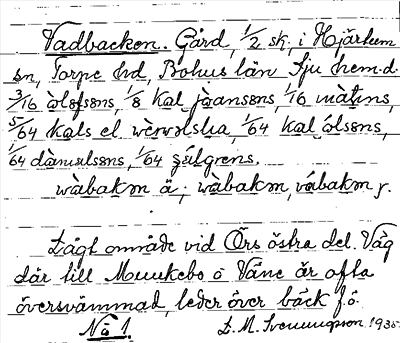 Vadbacken. Gård, 1/2 sk, i Hjärtum
sn, Torpe hd, Bohus län Sju hem.d.
3/16 òlofsøns, 1/8 Kal jòansøns, 1/16 màtins,
5/64 Kals el wèrvølska, 1/64 Kal ólsøns,
1/64 dànıælsøns, 1/64 sjúlgrens.
wàbakøn ä; wàbakøn, vábakøn y.
Lågt område vid Örs östra del. Väg
där till Munkebo o Väne är ofta
översvämmad, leder över bäck f.ö.
No 1. D. M. Svenungson 1935